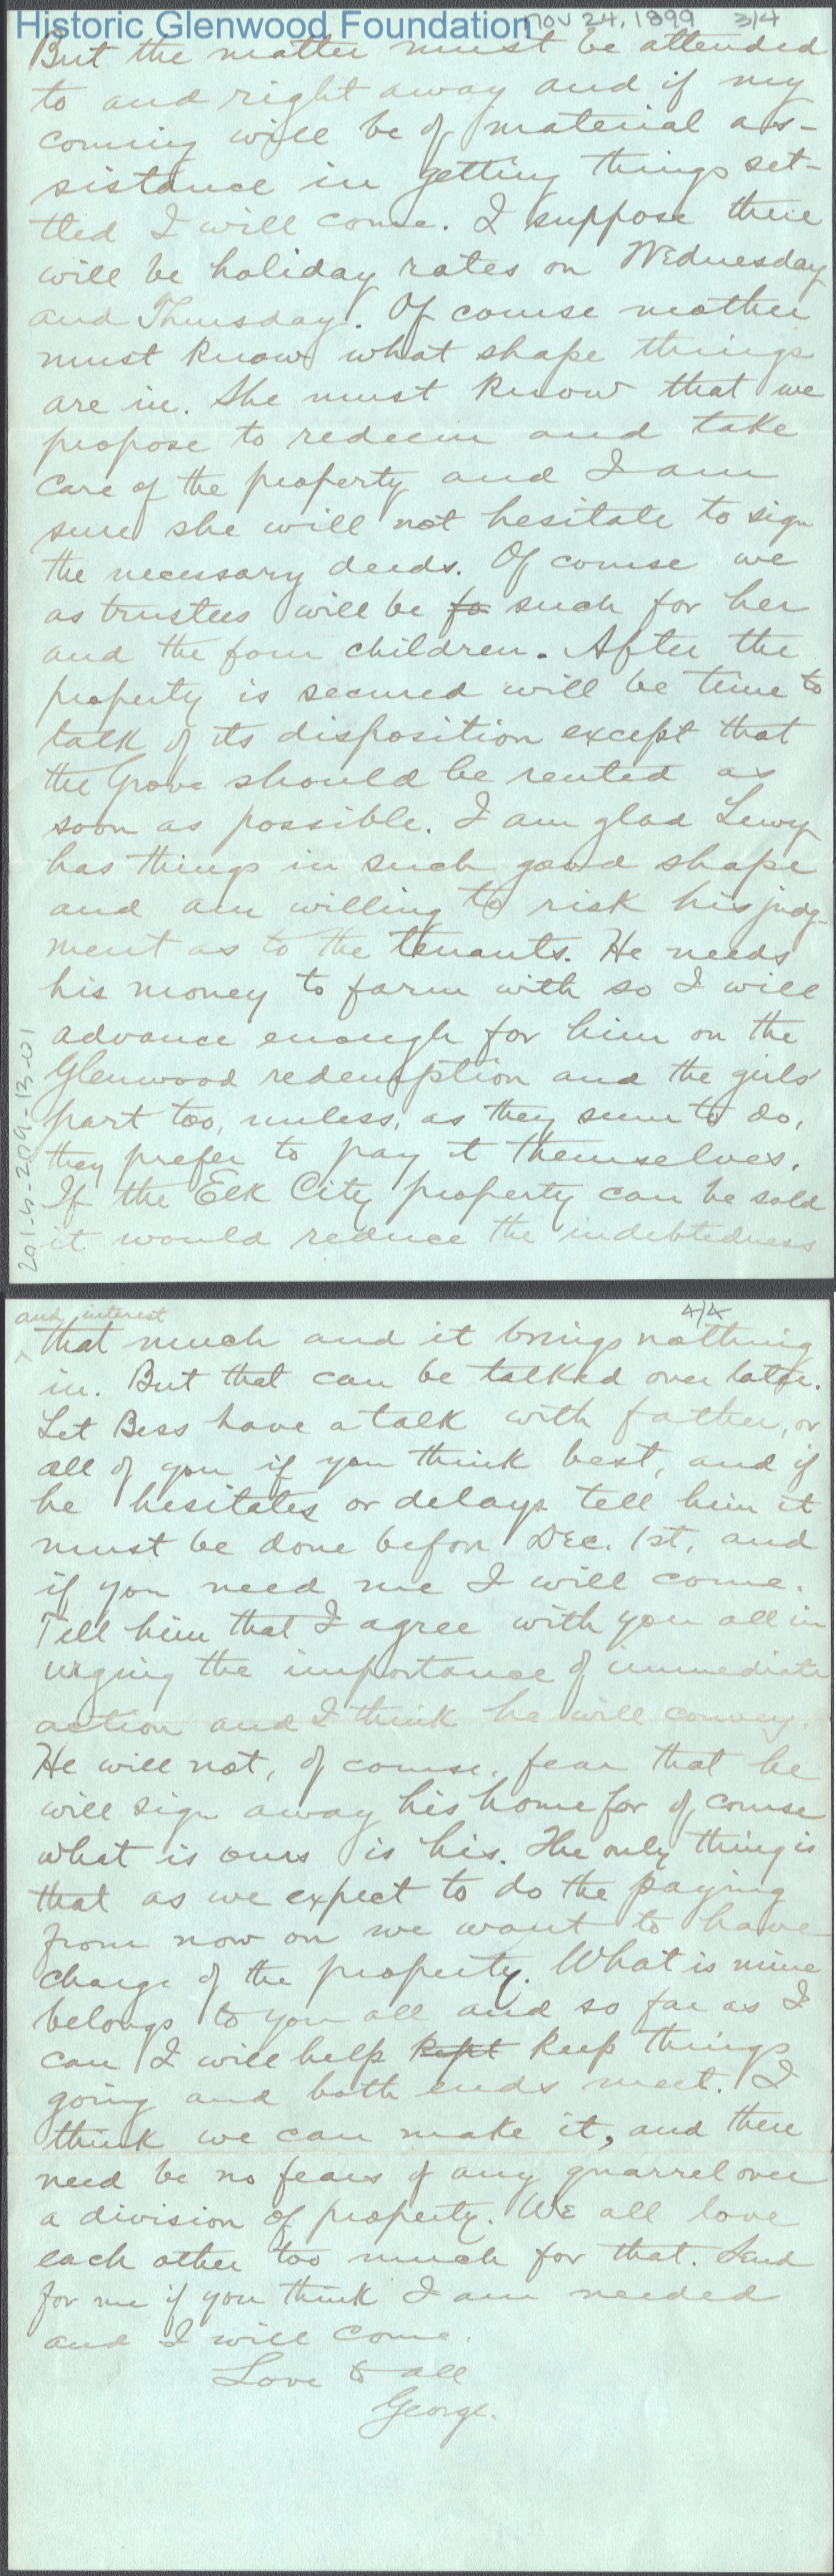 Historic Glenwood Foundation
Nov 24, 1899 3/4
But the matter must be attended
to and right away and if my
coming will be of material as-
sistance in getting things set-
tled I will come. I suppose there
will be holiday rates on Wednesday
and Thursday. Of course mother
must know what shape things
are in. She must know that we
propose to redeem and take
care of the property and I am
sure she will not hesitate to sign
the necessary deeds. Of course we
as trustees will be fo such for her
and the four children. After the
property is secured will be time to
talk of its disposition except that
the Grove should be rented as
soon as possible. I am glad Lewy
has things in such good shape
and am willing to risk his judg-
ment as to the tenants. He needs
his money to farm with so I will
advance enough for him on the
Glenwood redemption and the girls'
part too, unless, as they seem to do,
they prefer to pay it themselves.
If the Elk City property can be sold
it would reduce the indebtedness
201-5-209-13-01
4/4
and interest
^ that much and it brings nothing
in. But that can be talked over later.
Let Bess have a talk with father, or
all of you if you think best, and if
he hesitates or delays tell him it
must be done before Dec. 1st, and
if you need me I will come.
Tell him that I agree with you all in
urging the importance of immediate
action and I think he will convey.
He will not, of course, fear that he
will sign away his home for of course
what is ours is his. The only thing is
that as we expect to do the paying
from now on we want to have
charge of the property. What is mine
belongs to you all and so far as I
can I will help kept keep things
going and both ends meet. I
think we can make it, and there
need be no fears of any quarrel over
a division of property. We all love
each other too much for that. Send
for me if you think I am needed
and I will come.
Love to all
George.